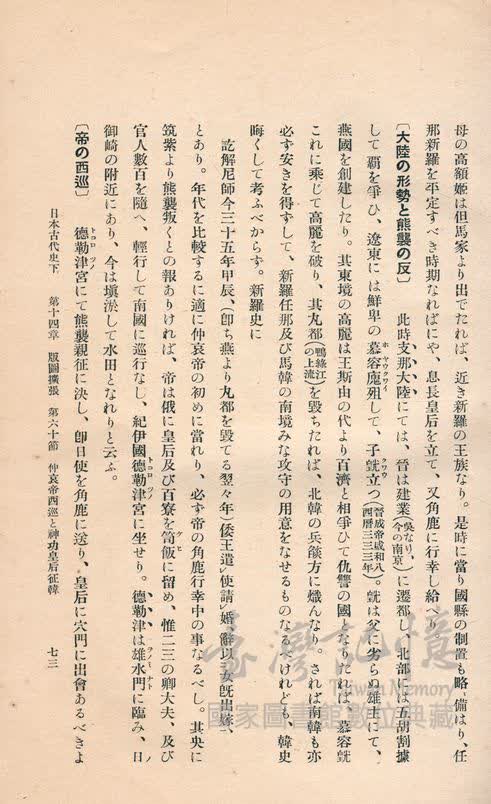 母の高額姬は但馬家より出でたれば、近き新羅の王族なり。是時に當り國縣の制置も略ゝ備はり、任
那新羅を平定すべき時期なればにや、息長皇后を立て、又角鹿に行幸し給へり。
〔大陸の形勢と熊襲の反〕 此時支那大陸にては、晉は建業(吳なり、今の南京)に遷都し、北部は五胡割據
して覇を爭ひ、遼東には鮮卑の慕容廆殂して、子皝立つ(晉成帝咸和八西曆三三三年)。皝は父に劣らぬ雄主にて、
燕國を創建したり。其東境の高麗は王斯由の代より百濟と相爭ひて仇讐の國となりたれば、慕容皝
これに乘じて高麗を破り、其丸都(鴨綠江の上流)を毀ちたれば、北韓の兵燄方に熾んなり。されば南韓も亦
必ず安きを得ずして、新羅任那及び馬韓の南境みな攻守の用意をなせるものなるべけれども、韓史
晦くして考ふべからず。新羅史に
訖解尼師今三十五年甲辰、(卽ち燕より丸都を毀てる翌々年)倭王遣使請婚、辭以女旣出嫁、
とあり。年代を比較するに適に仲哀帝の初めに當れり、必ず帝の角鹿行幸中の事なるべし。其央に
筑紫より熊襲叛くとの報ありければ、帝は俄に皇后及び百寮を笥飯に留め、惟二三の卿大夫、及び
官人數百を隨へ、輕行して南國に巡行なし、紀伊國德勒津宮に坐せり。德勒津は雄水門に臨み、日
御崎の附近にあり、今は塡淤して水田となれりと云ふ。
〔帝の西巡〕 德勒津宮にて熊襲親征に決し、卽日使を角鹿に送り、皇后に穴門に出會あるべきよ
日本古代史下 第十四章 版圖擴張 第六十節 仲哀帝西巡と神功皇后征韓 七三
臺灣記憶
Taiwan Memory
國家圖書館數位典藏